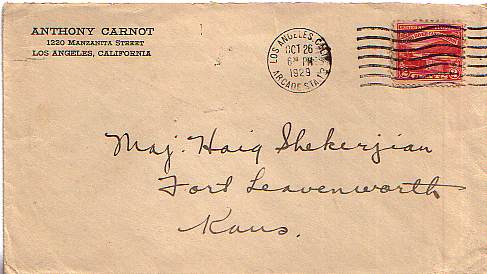 ANTHONY CARNOT
1220 MANZANITA STREET
LOS ANGELES, CALIFORNIA
LOS ANGELES, CALIF.
OCT 26
6 PM
1929
ARCADE STA.
Maj. Haig Shekerjian
Fort Leavenworth
Kans.